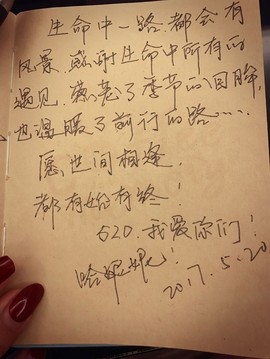 生命中一路.都会有
风景.感谢生命中所有的
遇见.惹了季节的回眸,
也温暖了前行的路……
愿世间相逢,
都有始有终!
520.我爱你们!
哈妮!
2017.5.20